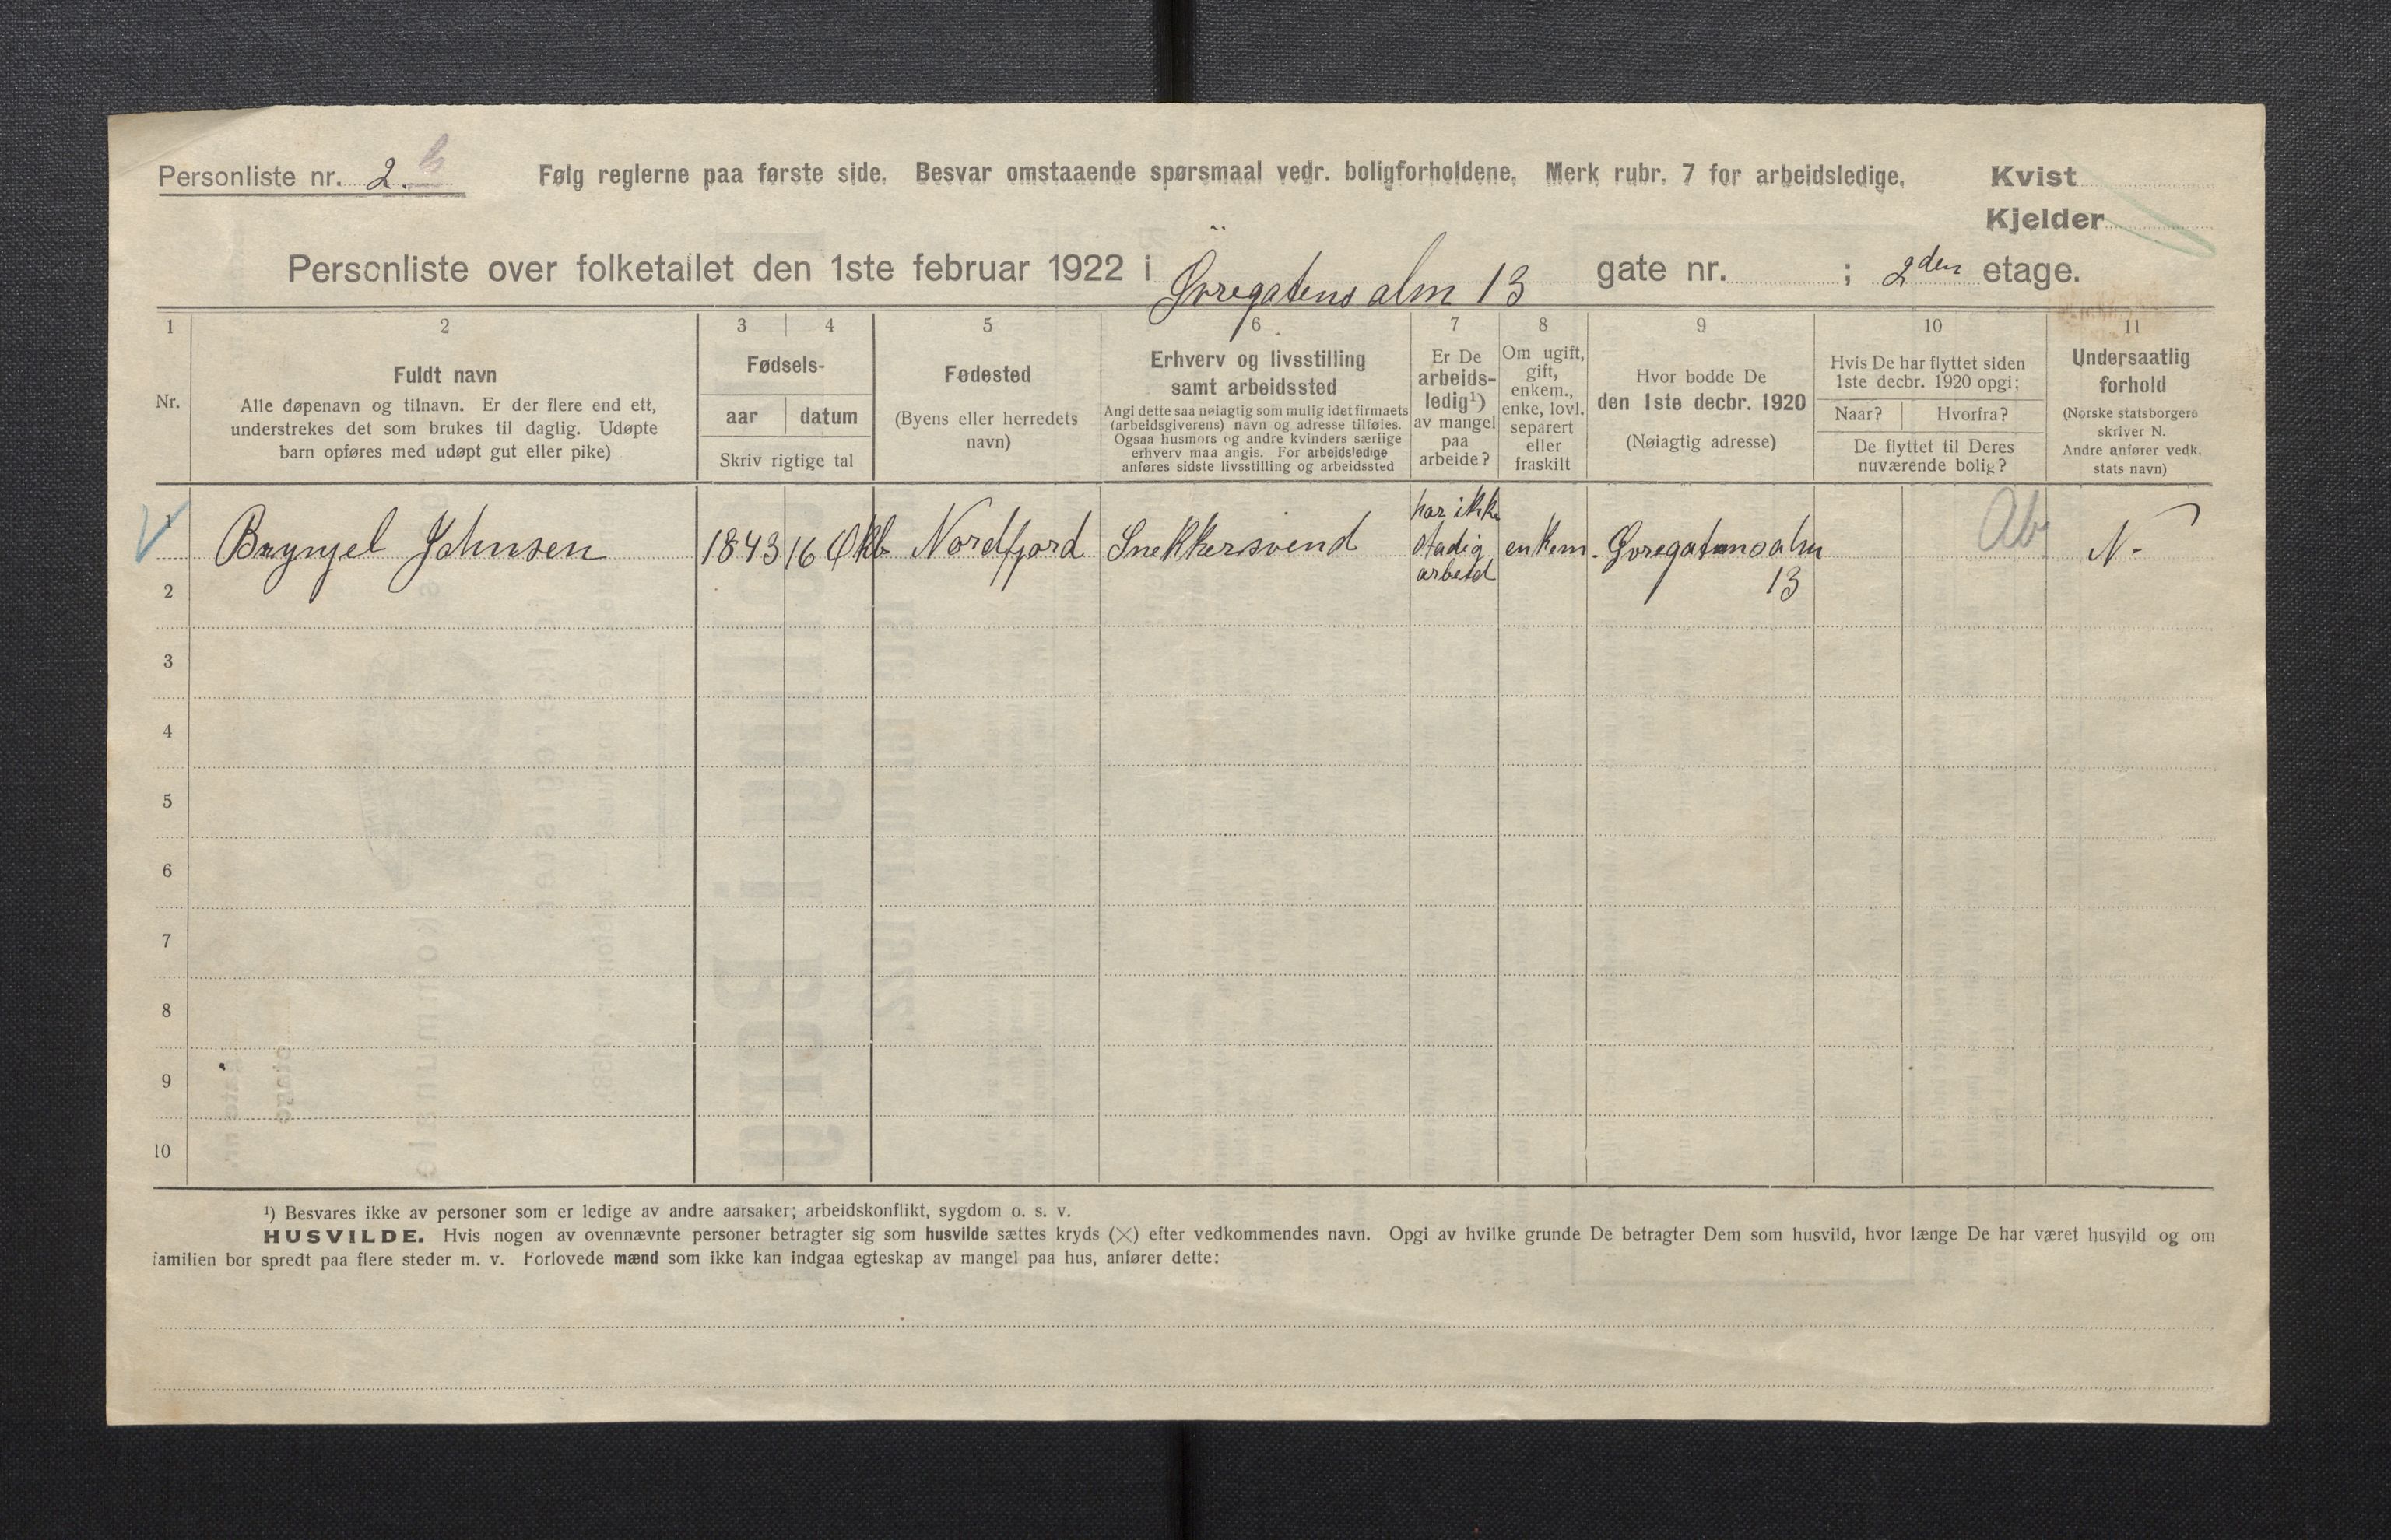 Personliste nr. 2. b
Følg reglerne paa første side. Besvar omstaaende spørsmaal vedr. boligforholdene. Merk rubr. 7 for arbeidsledige.
Kvist
Kjelder
Personliste over folketallet den 1ste februar 1922 i Øvregatens alm 13 gate nr. ; 2den etage.
1 2 3 4 5 6 7 8 9 10 11
Nr.
Fuldt navn
Alle døpenavn og tilnavn. Er der flere end ett,
understrekes det som brukes til daglig. Udøpte
barn opføres med udøpt gut eller pike)
Fødsels-
aar datum
Skriv rigtige tal
Fødested
(Byens eller herredets
navn)
Erhverv og livsstilling
samt arbeidssted
Angi dette saa nøiagtig som mulig idet firmaets
(arbeidsgiverens) navn og adresse tilføies.
Ogsaa husmors og andre kvinders særlige
erhverv maa angis. For arbeidsledige
anføres sidste livsstilling og arbeidssted
Er De
arbeids-
ledig¹)
av mangel
paa
arbeide?
Om ugift,
gift,
enkem.,
enke, lovl.
separert
eller
fraskilt
Hvor bodde De
den 1ste decbr. 1920
(Nøiagtig adresse)
Hvis De har flyttet siden
1ste decbr. 1920 opgi:
Naar? Hvorfra?
De flyttet til Deres
nuværende bolig?
Undersaatlig
forhold
(Norske statsborgere
skriver N.
Andre anfører vedk.
stats navn)
1 Brynjel Johnsen 1843 16 Okb. Nordfjord Snekkersvend har ikke stadig arbeid enkem. Øvregatens alm 13 Ab. N.
2
3
4
5
6
7
8
9
10
¹) Besvares ikke av personer som er ledige av andre aarsaker; arbeidskonflikt, sygdom o. s. v.
HUSVILDE. Hvis nogen av ovennævnte personer betragter sig som husvilde sættes kryds (×) efter vedkommendes navn. Opgi av hvilke grunde De betragter Dem som husvild, hvor længe De har været husvild og om
familien bor spredt paa flere steder m. v. Forlovede mænd som ikke kan indgaa egteskap av mangel paa hus, anfører dette: